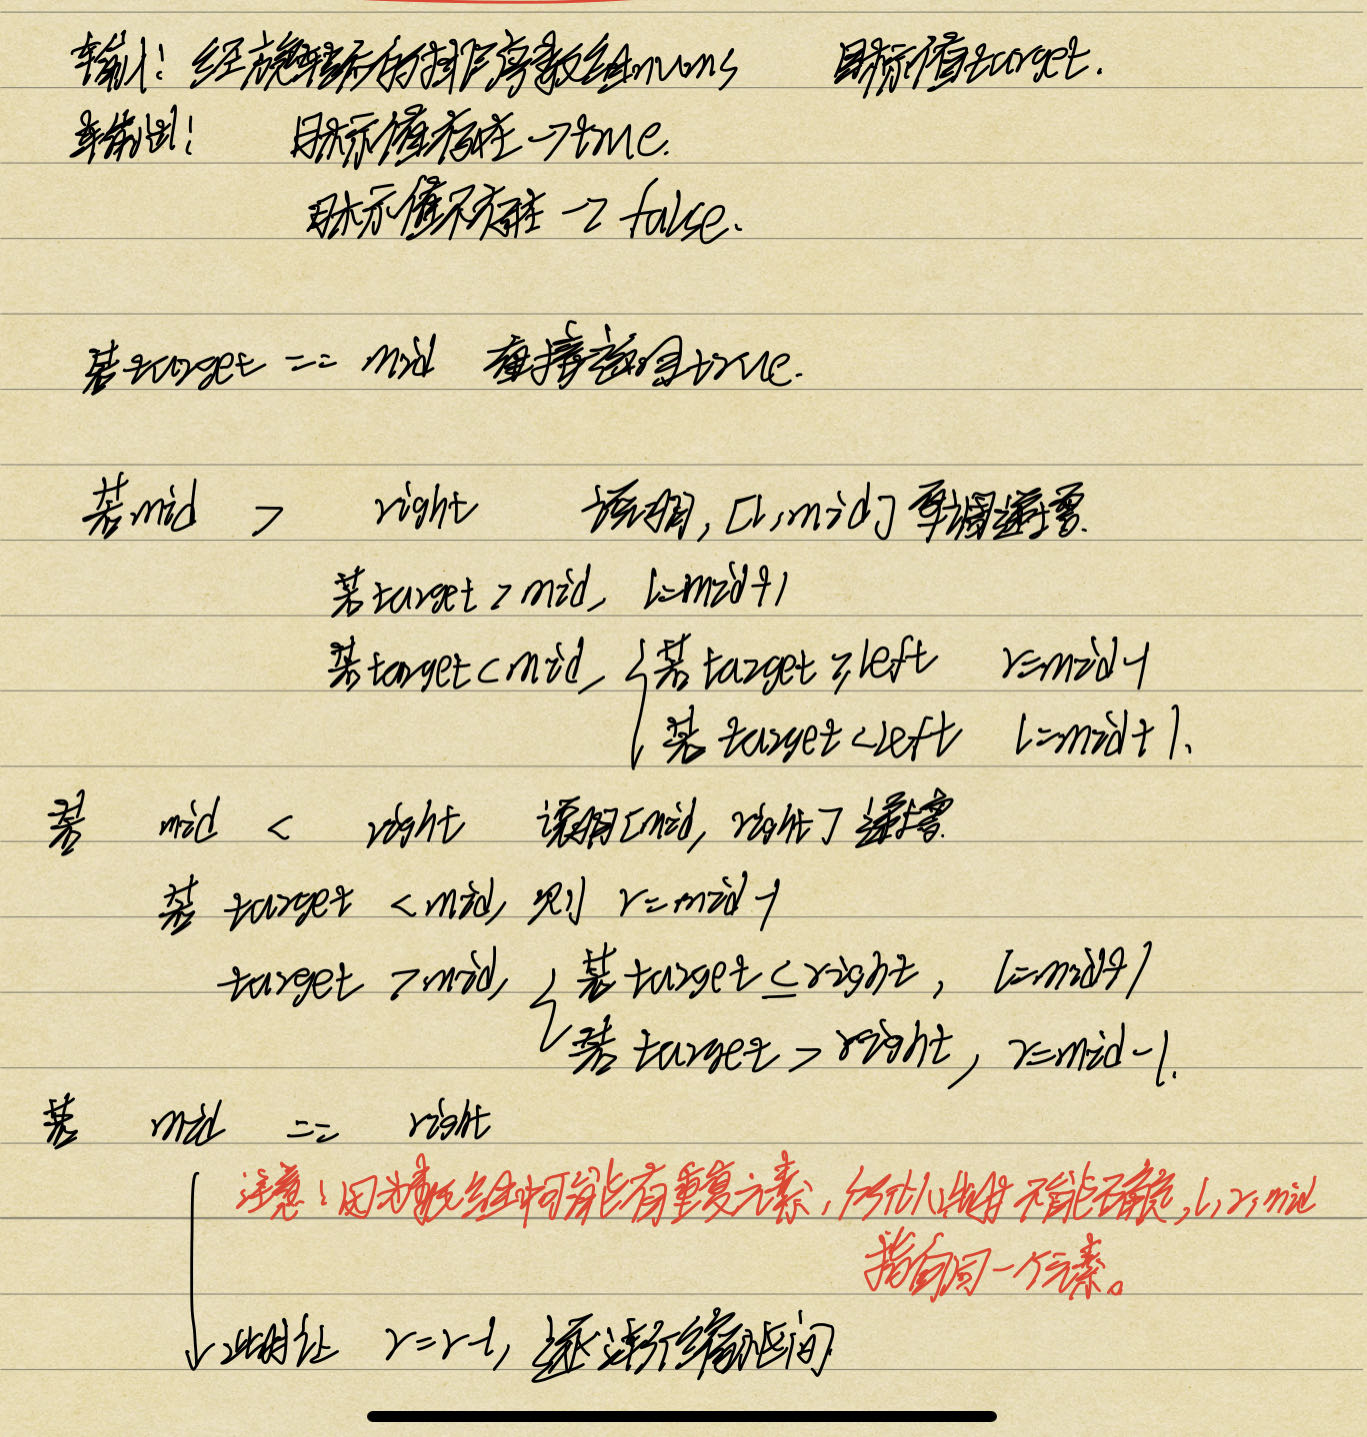 输入: 经旋转后的排序数组nums 目标值target.
输出: 目标值存在→true.
目标值不存在→false.
若target == mid 直接返回true.
若mid > right 说明, [l, mid]单调递增.
若target > mid, l=mid+1
若target < mid, { 若target ≥ left r=mid-1
若target < left l=mid+1.
若 mid < right 说明[mid, right]递增.
若 target < mid, 则 r=mid-1
target > mid, { 若target ≤ right, l=mid+1
若target > right, r=mid-1.
若 mid == right
注意! 因为数组中可能有重复元素, 所以此时不能确定, l, r, mid
指向同一个元素。
此时让 r=r-1, 逐渐缩小区间